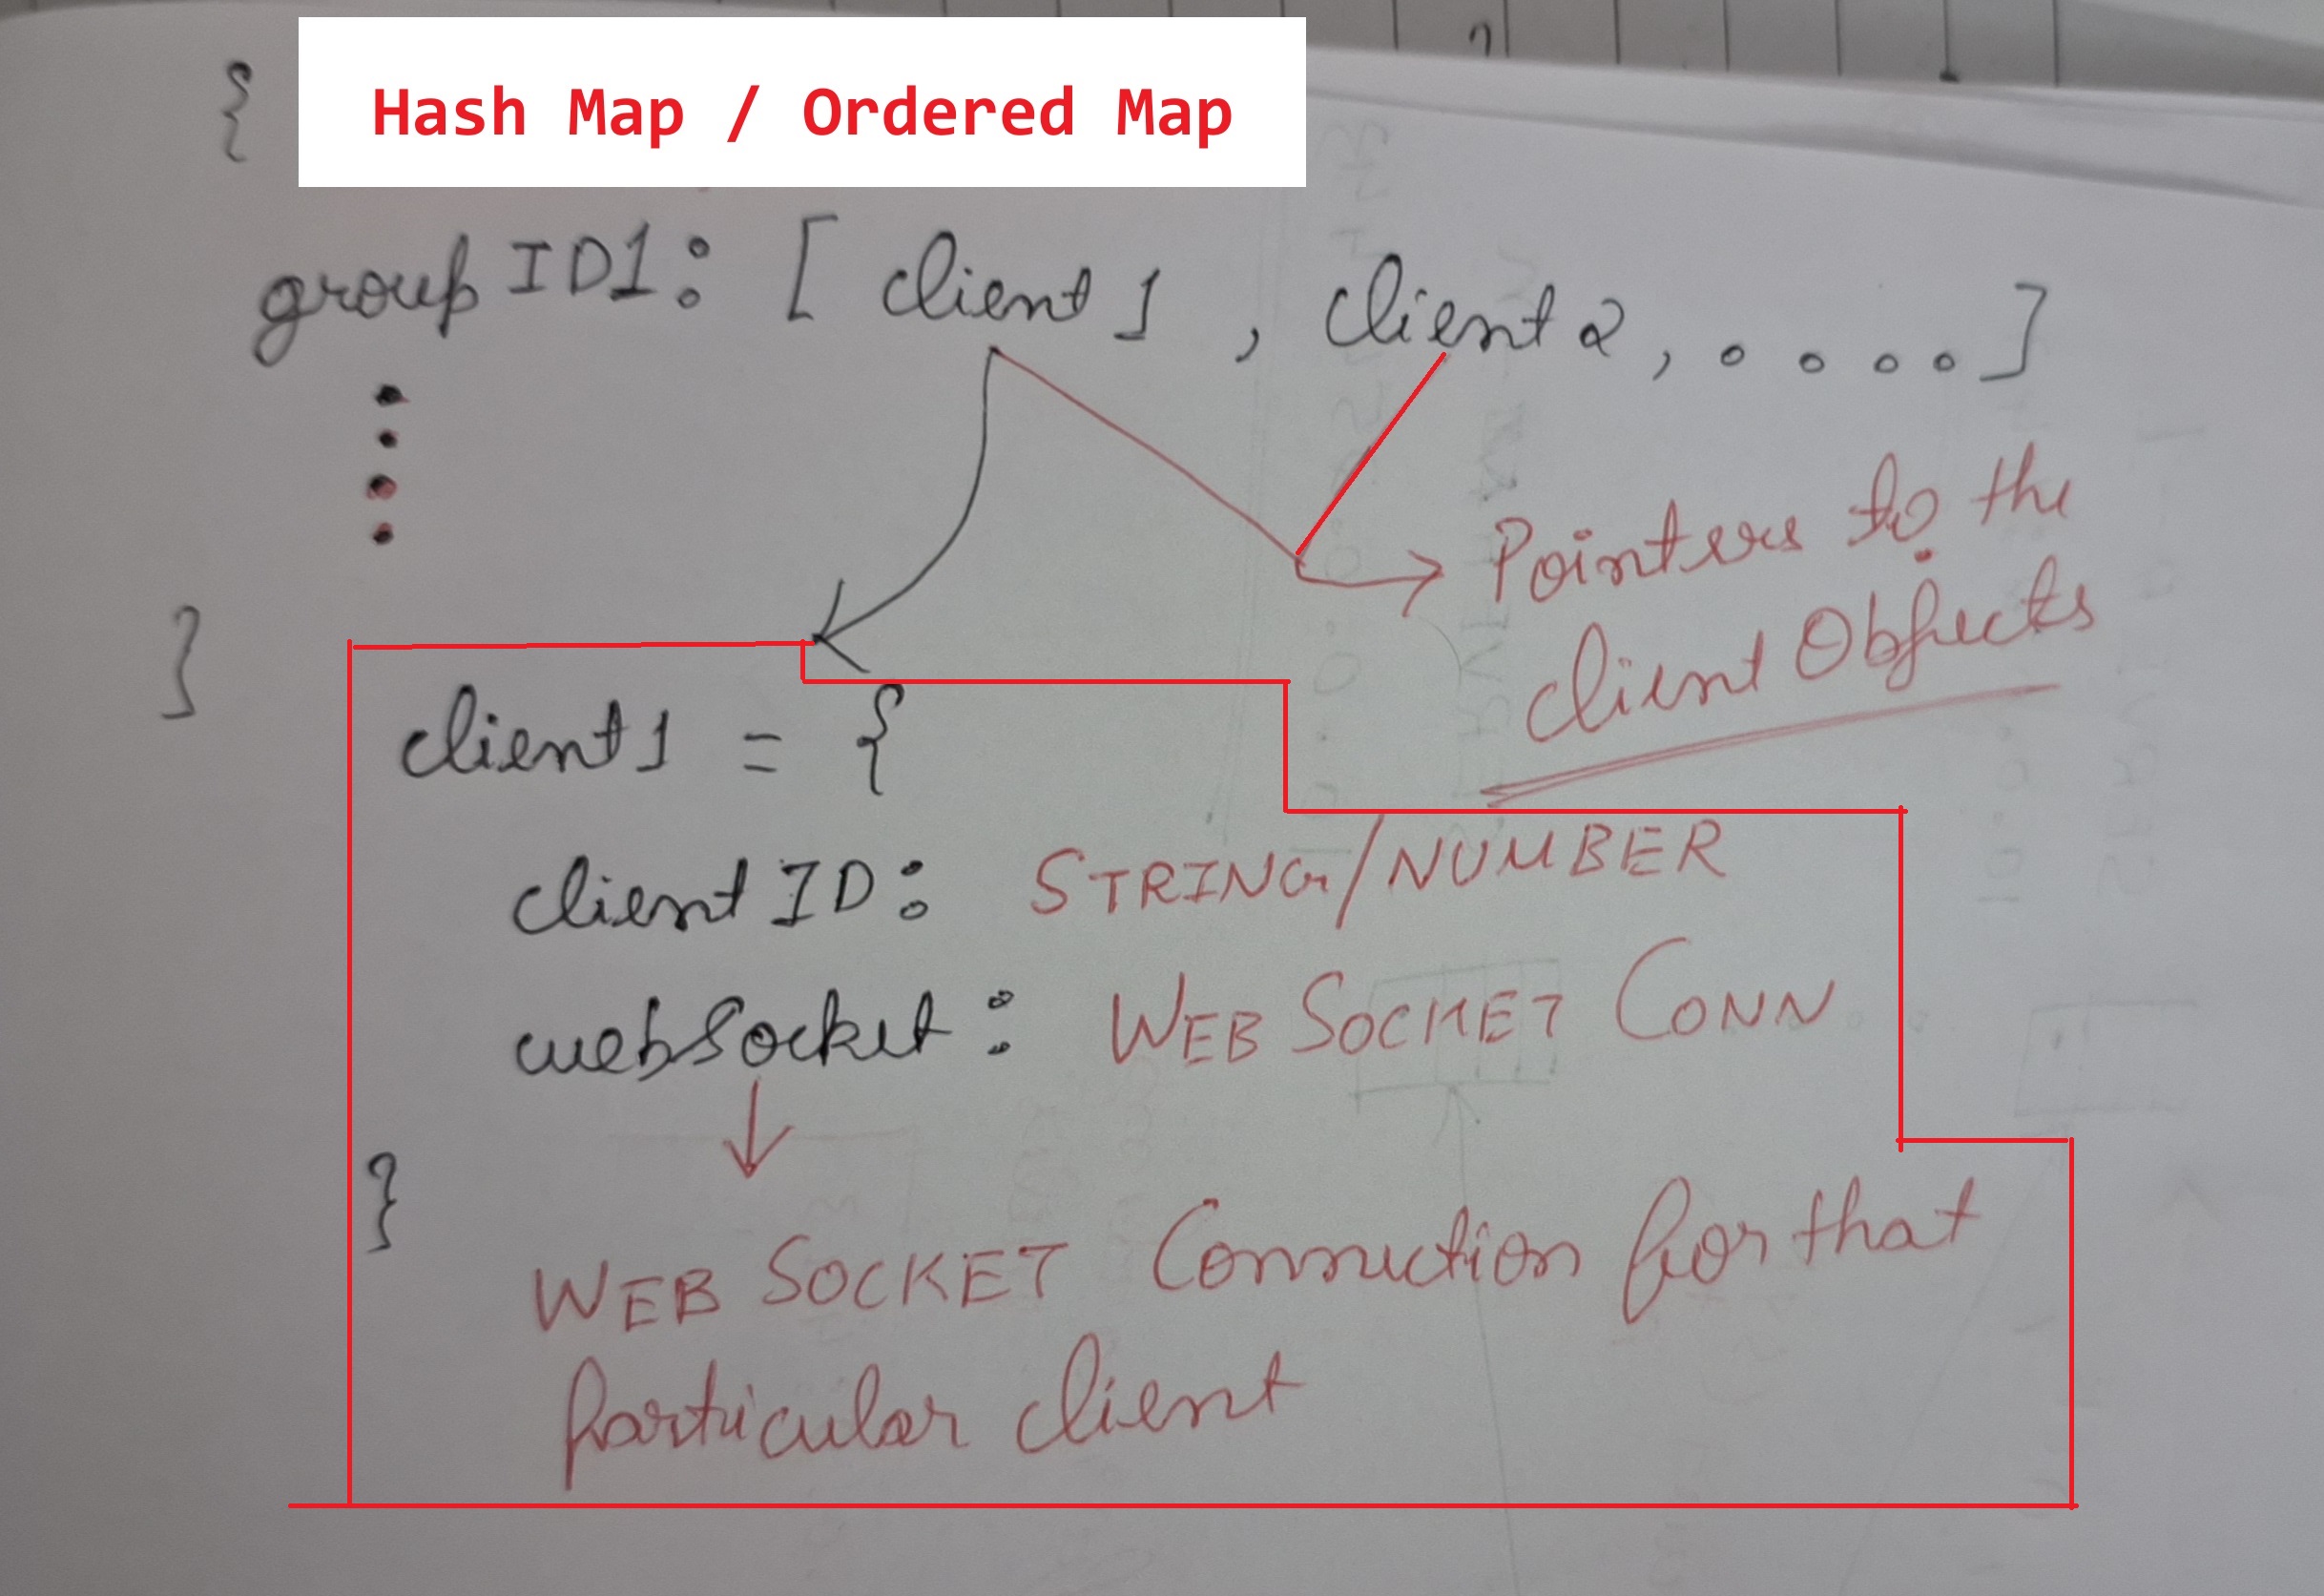 {
Hash Map / Ordered Map
groupID1: [ client1 , client2 , . . . . ]
Pointers to the
client Objects
}
client1 = {
clientID: STRING/NUMBER
webSocket: WEB SOCKET CONN
}
WEB SOCKET Connection for that
particular client